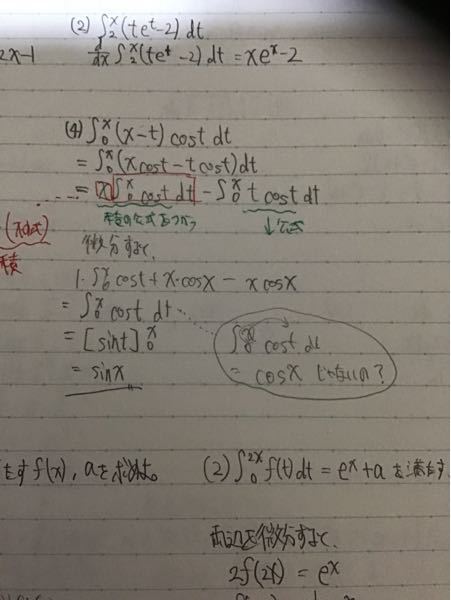 (2) ∫₂ˣ(te^t-2)dt
2x-1
d/dx ∫₂ˣ(te^t-2)dt = xeˣ-2
(4) ∫₀ˣ(x-t)cost dt
= ∫₀ˣ(xcost-tcost)dt
= x∫₀ˣcost dt - ∫₀ˣ t cost dt
積の公式をつかう
↓公式
積
微分すると、
1・∫₀ˣcost + x・cosx - xcosx
= ∫₀ˣ cost dt
= [sint]₀ˣ
= sinx
∫₀ˣ cost dt
= cosx じゃないの?
たすf(x), aを求めよ。
(2) ∫₀²ˣ f(t)dt = eˣ+a を満たす
両辺を微分すると、
2f(2x) = eˣ